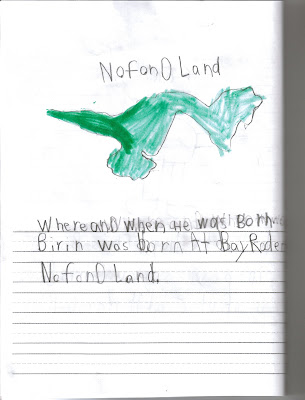 NofonD Land
Where and when He was Born
Birin was born At Bay Roder
NofonD Land.